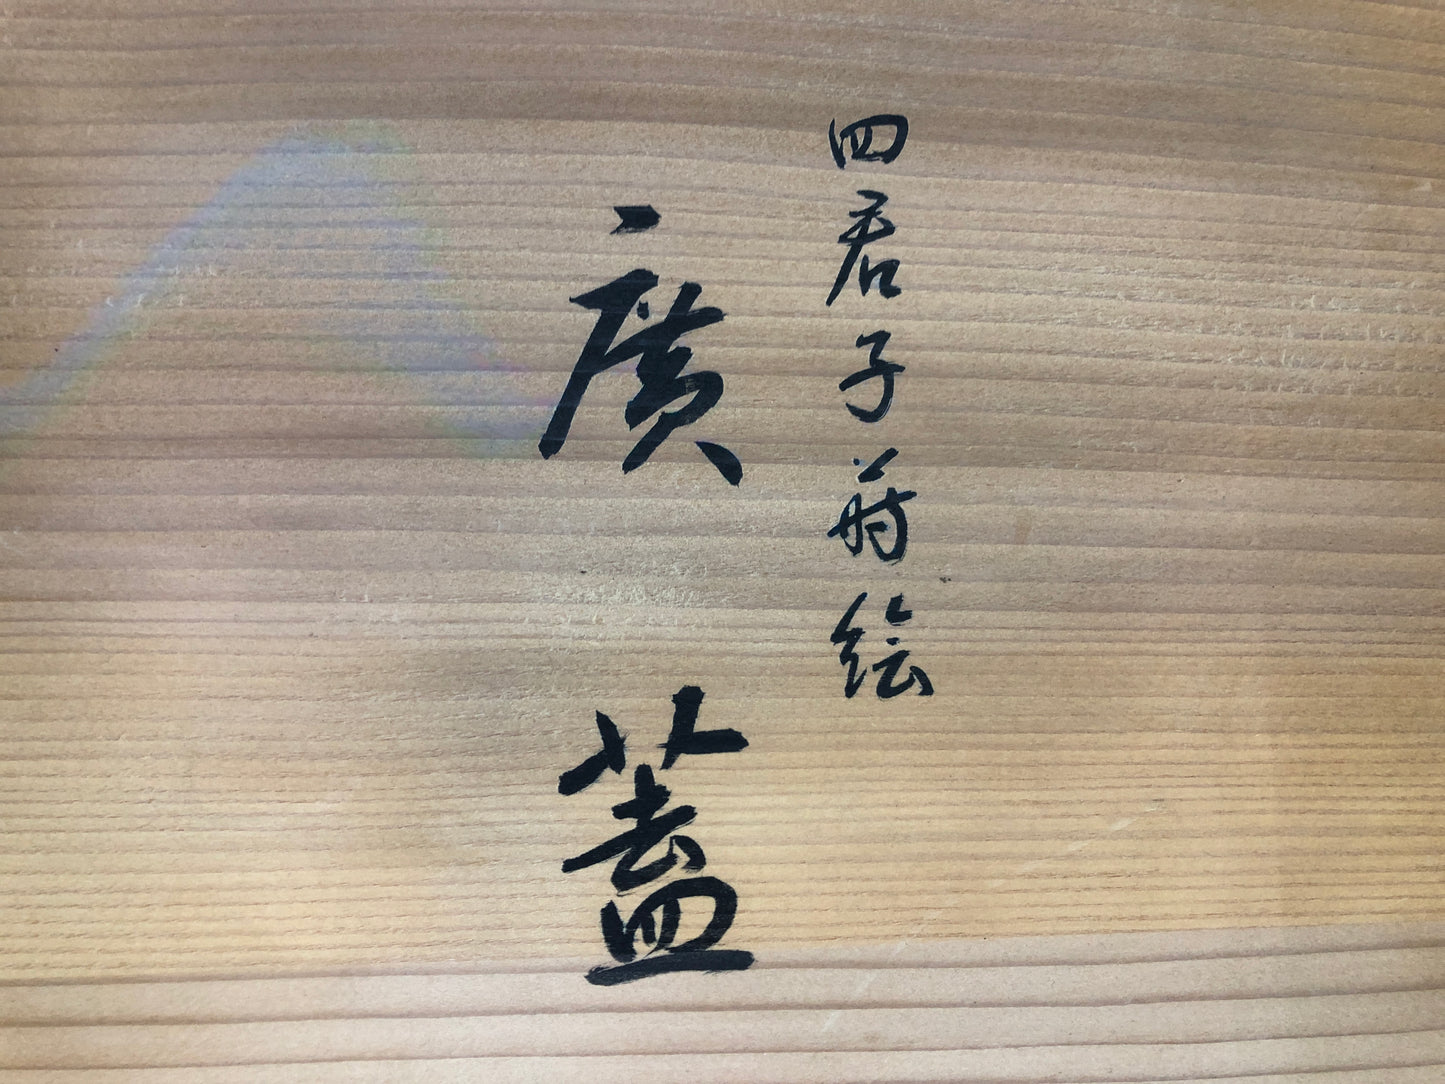 四君子蒔絵
廣蓋